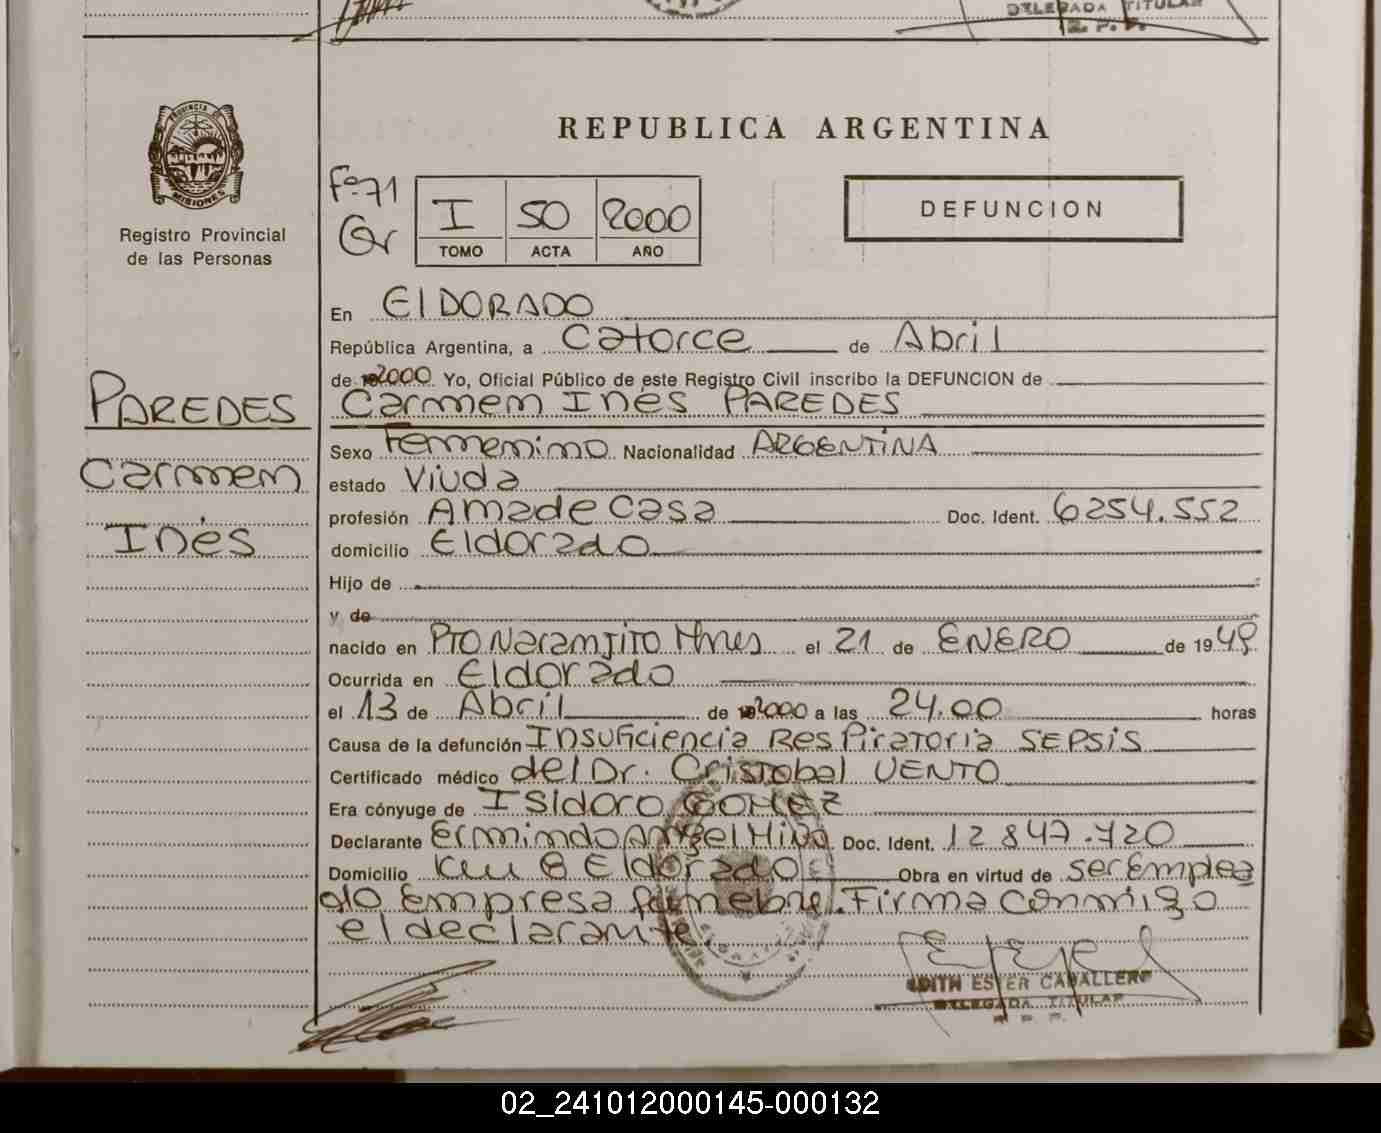 DELEGADA TITULAR
R. P. P.
PROVINCIA DE
MISIONES
Registro Provincial
de las Personas
REPUBLICA ARGENTINA
Fº 71
I 50 2000
TOMO ACTA AÑO
DEFUNCION
En ElDORADO
República Argentina, a Catorce de Abril
de 2000 Yo, Oficial Público de este Registro Civil inscribo la DEFUNCION de
Carmen Inés PAREDES
PAREDES
Carmen
Inés
Sexo Femenino Nacionalidad ARGENTINA
estado Viuda
profesión Ama de Casa Doc. Ident. 6254.552
domicilio Eldorado
Hijo de
y de
nacido en Pto Naranjito Mnes el 21 de ENERO de 1949
Ocurrida en Eldorado
el 13 de Abril de 2000 a las 24.00 horas
Causa de la defunción Insuficiencia Respiratoria SEPSIS
Certificado médico del Dr. Cristobal VENTO
Era cónyuge de Isidoro GOMEZ
Declarante Ermindo Angel Doc. Ident. 12 847.720
Domicilio Km 8 Eldorado Obra en virtud de ser Emplea
do Empresa funebre. Firma Conmigo
el declarante.
EDITH ESTER CABALLERO
DELEGADA TITULAR
R. P. P.
02_241012000145-000132